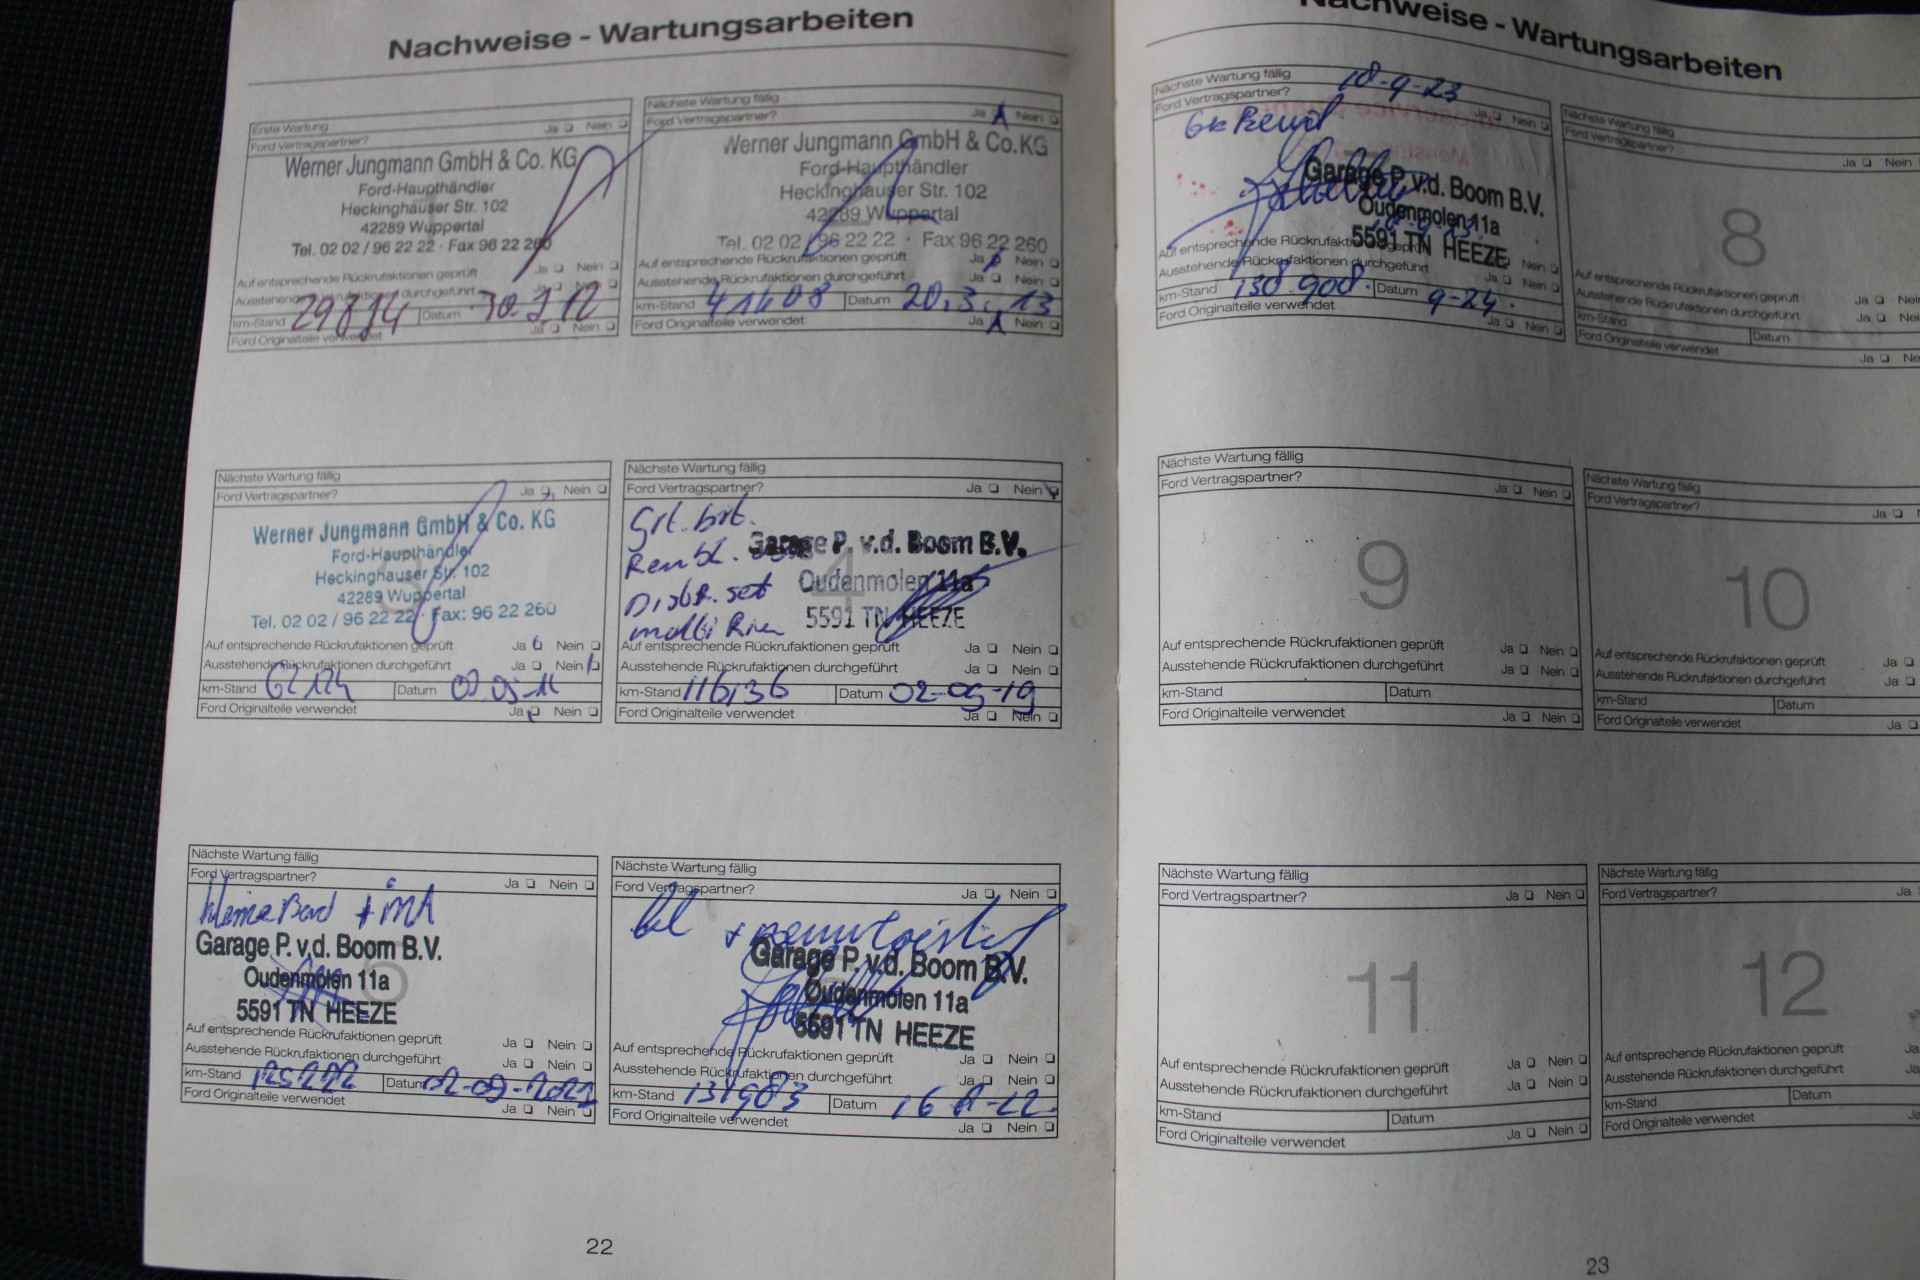 Nachweise - Wartungsarbeiten
Erste Wartung
Ford Vertragspartner? Ja Nein
Werner Jungmann GmbH & Co. KG
Ford-Haupthändler
Heckinghauser Str. 102
42289 Wuppertal
Tel. 02 02 / 96 22 22 · Fax 96 22 260
Auf entsprechende Rückrufaktionen geprüft Ja Nein
Ausstehende Rückrufaktionen durchgeführt Nein
km-Stand 29814 Datum 30.3.12
Ford Originalteile verwendet Ja Nein
Nächste Wartung fällig
Ford Vertragspartner? Ja Nein
Werner Jungmann GmbH & Co.KG
Ford-Haupthändler
Heckinghauser Str. 102
42289 Wuppertal
Tel. 02 02 / 96 22 22 · Fax 96 22 260
Auf entsprechende Rückrufaktionen geprüft Ja Nein
Ausstehende Rückrufaktionen durchgeführt Ja Nein
km-Stand 41408 Datum 20.3.13
Ford Originalteile verwendet Ja Nein
Nächste Wartung fällig
Ford Vertragspartner? Ja Nein
Werner Jungmann GmbH & Co. KG
Ford-Haupthändler
Heckinghauser Str. 102
42289 Wuppertal
Tel. 02 02 / 96 22 22 · Fax: 96 22 260
Auf entsprechende Rückrufaktionen geprüft Ja Nein
Ausstehende Rückrufaktionen durchgeführt Ja Nein
km-Stand 62124 Datum
Ford Originalteile verwendet Ja Nein
Nächste Wartung fällig
Ford Vertragspartner? Ja Nein
4
Garage P. v.d. Boom B.V.
Oudenmolen 11a
5591 TN HEEZE
Auf entsprechende Rückrufaktionen geprüft Ja Nein
Ausstehende Rückrufaktionen durchgeführt Ja Nein
km-Stand 116136 Datum 02-09-19
Ford Originalteile verwendet Ja Nein
Nächste Wartung fällig
Ford Vertragspartner? Ja Nein
Garage P. v.d. Boom B.V.
Oudenmolen 11a
5591 TN HEEZE
Auf entsprechende Rückrufaktionen geprüft Ja Nein
Ausstehende Rückrufaktionen durchgeführt Ja Nein
km-Stand 125222 Datum
Ford Originalteile verwendet Ja Nein
Nächste Wartung fällig
Ford Vertragspartner? Ja Nein
Garage P. v.d. Boom B.V.
Oudenmolen 11a
5591 TN HEEZE
Auf entsprechende Rückrufaktionen geprüft Ja Nein
Ausstehende Rückrufaktionen durchgeführt Ja Nein
km-Stand 131983 Datum
Ford Originalteile verwendet Ja Nein
22
Nachweise - Wartungsarbeiten
Nächste Wartung fällig 18-9-23
Ford Vertragspartner? Ja Nein
Garage P. v.d. Boom B.V.
Oudenmolen 11a
5591 TN HEEZE
Auf entsprechende Rückrufaktionen Nein
Ausstehende Rückrufaktionen durchgeführt Ja Nein
km-Stand 138908 Datum 9-24
Ford Originalteile verwendet Ja Nein
Nächste Wartung fällig
Ford Vertragspartner?
Ja Nein
8
Auf entsprechende Rückrufaktionen geprüft Ja
Ausstehende Rückrufaktionen durchgeführt Ja
km-Stand Datum
Ford Originalteile verwendet Ja
Nächste Wartung fällig
Ford Vertragspartner? Ja Nein
9
Auf entsprechende Rückrufaktionen geprüft Ja Nein
Ausstehende Rückrufaktionen durchgeführt Ja Nein
km-Stand Datum
Ford Originalteile verwendet Ja Nein
Nächste Wartung fällig
Ford Vertragspartner? Ja
10
Auf entsprechende Rückrufaktionen geprüft Ja
Ausstehende Rückrufaktionen durchgeführt Ja
km-Stand Datum
Ford Originalteile verwendet Ja
Nächste Wartung fällig
Ford Vertragspartner? Ja Nein
11
Auf entsprechende Rückrufaktionen geprüft Ja Nein
Ausstehende Rückrufaktionen durchgeführt Ja Nein
km-Stand Datum
Ford Originalteile verwendet Ja Nein
Nächste Wartung fällig
Ford Vertragspartner? Ja
12
Auf entsprechende Rückrufaktionen geprüft Ja
Ausstehende Rückrufaktionen durchgeführt Ja
km-Stand Datum
Ford Originalteile verwendet
23